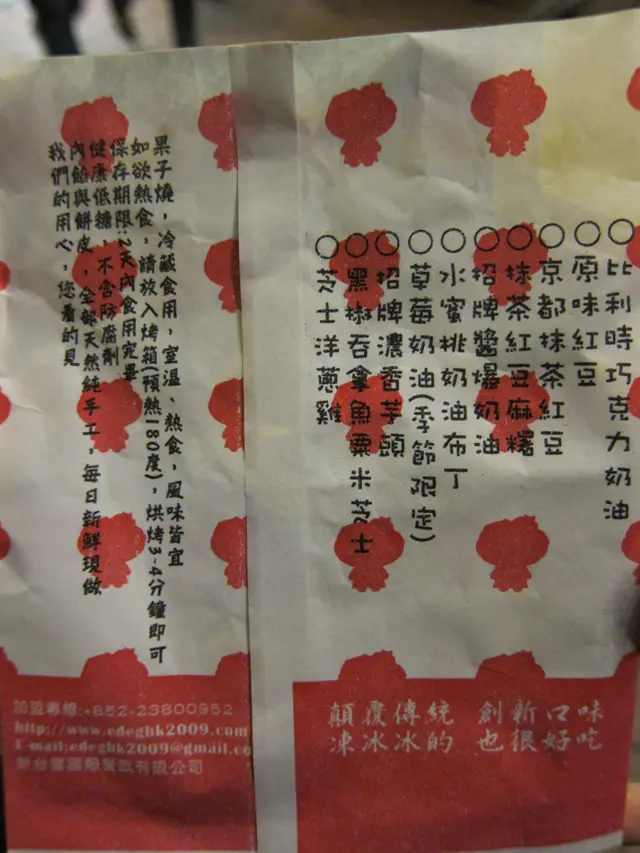 ○比利時巧克力奶油
○原味紅豆
○京都抹茶紅豆
○抹茶紅豆麻糬
○招牌醬爆奶油
○水蜜桃奶油布丁
○草莓奶油(季節限定)
○招牌濃香芋頭
○黑椒吞拿魚粟米芝士
○芝士洋蔥雞
顛覆傳統 創新口味
凍冰冰的 也很好吃
果子燒，冷藏食用，室溫、熱食，風味皆宜
如欲熱食，請放入烤箱(預熱180度)，烘烤3-4分鐘即可
保存期限:2天內食用完畢
健康低糖，不含防腐劑
內餡與餅皮，全部天然純手工，每日新鮮現做
我們的用心，您看的見
加盟專線:+852-23800952
http://www.edeghk2009.com
E-mail:edeghk2009@gmail.co
餐飲有限公司